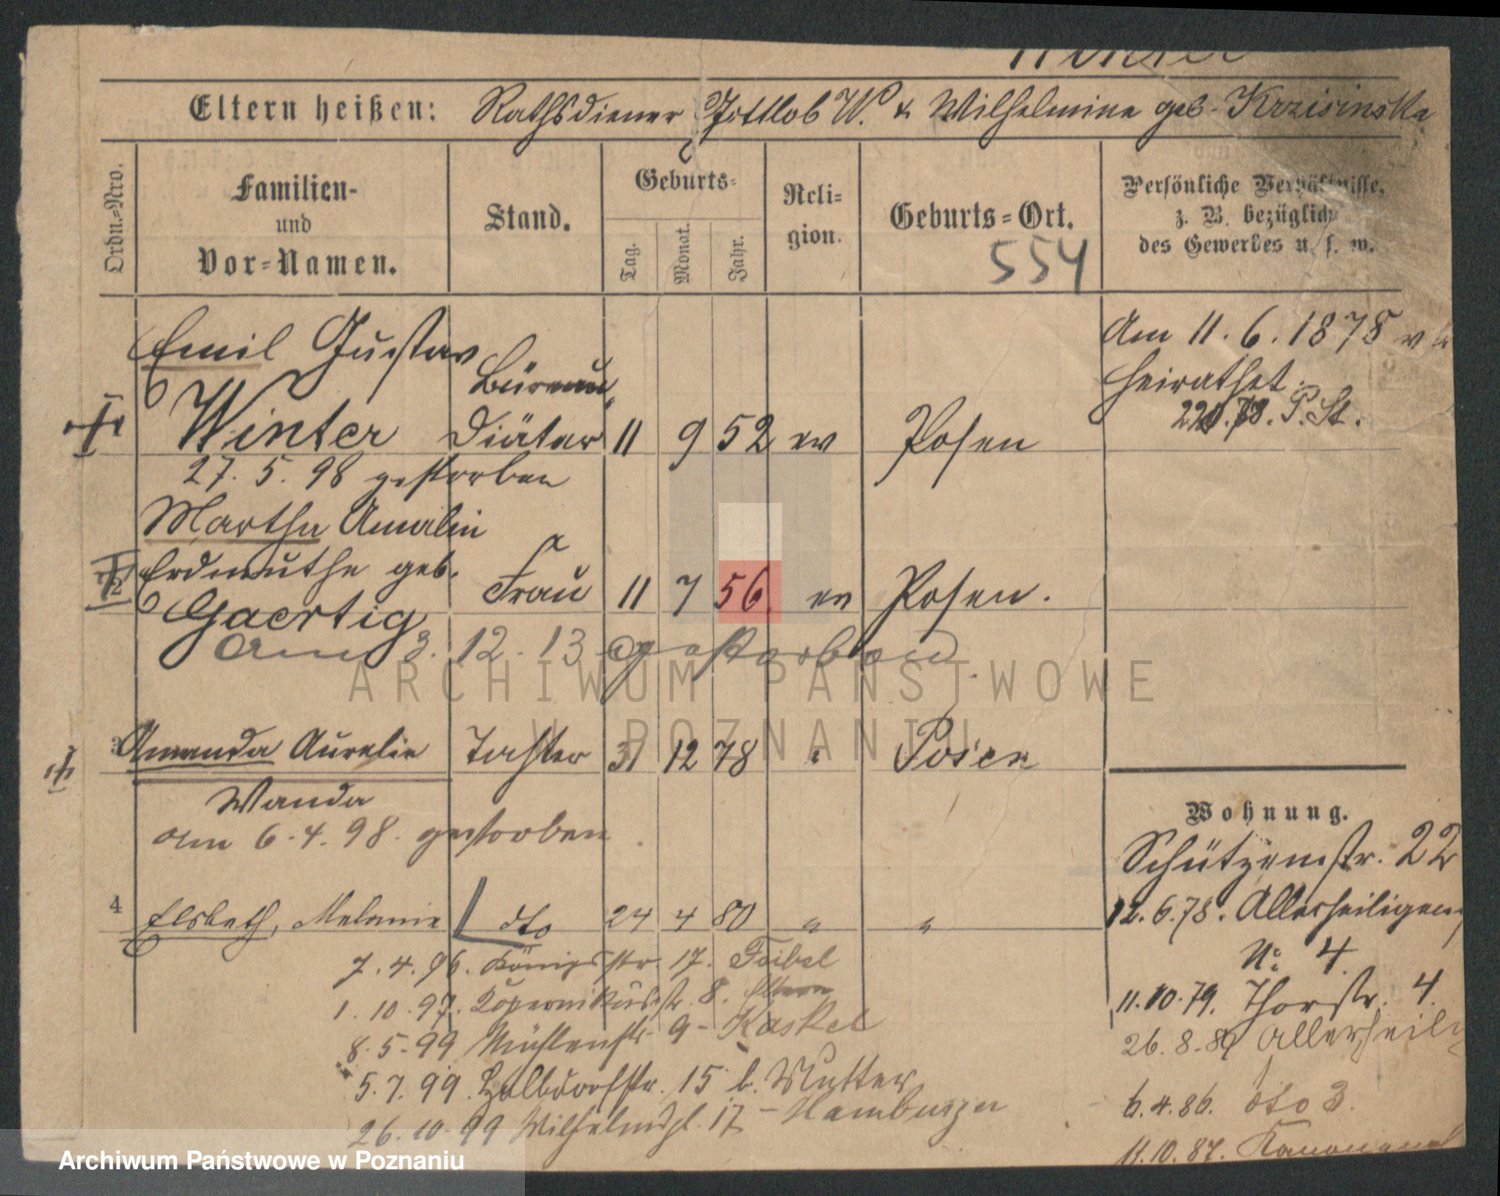 Eltern heißen: Rathsdiener Gottlob W. & Wilhelmine geb. Krzisinska
Ordn.-Nro.
Familien-
und
Vor-Namen.
Stand.
Geburts-
Tag.
Monat.
Jahr.
Reli-
gion.
Geburts-Ort.
554
Persönliche Verhältnisse,
z. B. bezüglich
des Gewerbes u. s. w.
Emil Gustav
Winter
Büreau
Diätar
11 9 52 ev Posen
Am 11. 6. 1878
heirathet.
P. St.
27. 5. 98 gestorben
Martha Amalie
2 Erdmuthe geb.
Gaertig
Frau 11 7 56 ev Posen.
Am 3. 12. 13 gestorben
ARCHIWUM PAŃSTWOWE
W POZNANIU
3 Amanda Aurelie Tochter 31 12 78 " Posen
Wanda
am 6. 4. 98. gestorben
4 Elsbeth, Melanie dto 24 4 80 " "
7. 4. 96. Königsstr. 17. Feibel
1. 10. 97. Kopernikusstr. 8. Eltern
8. 5. 99 Mühlenstr. 9 - Kaskel
5. 7. 99. Halbdorfstr. 15 b. Mutter
26. 10. 99 Wilhelmspl. 17 - Hamburger
Wohnung.
Schützenstr. 22
12. 6. 78. Allerheiligen
No 4
11. 10. 79. Thorstr. 4.
26. 8. Allerheil
6. 4. 86. dto 3.
11. 10. 87.
Archiwum Państwowe w Poznaniu